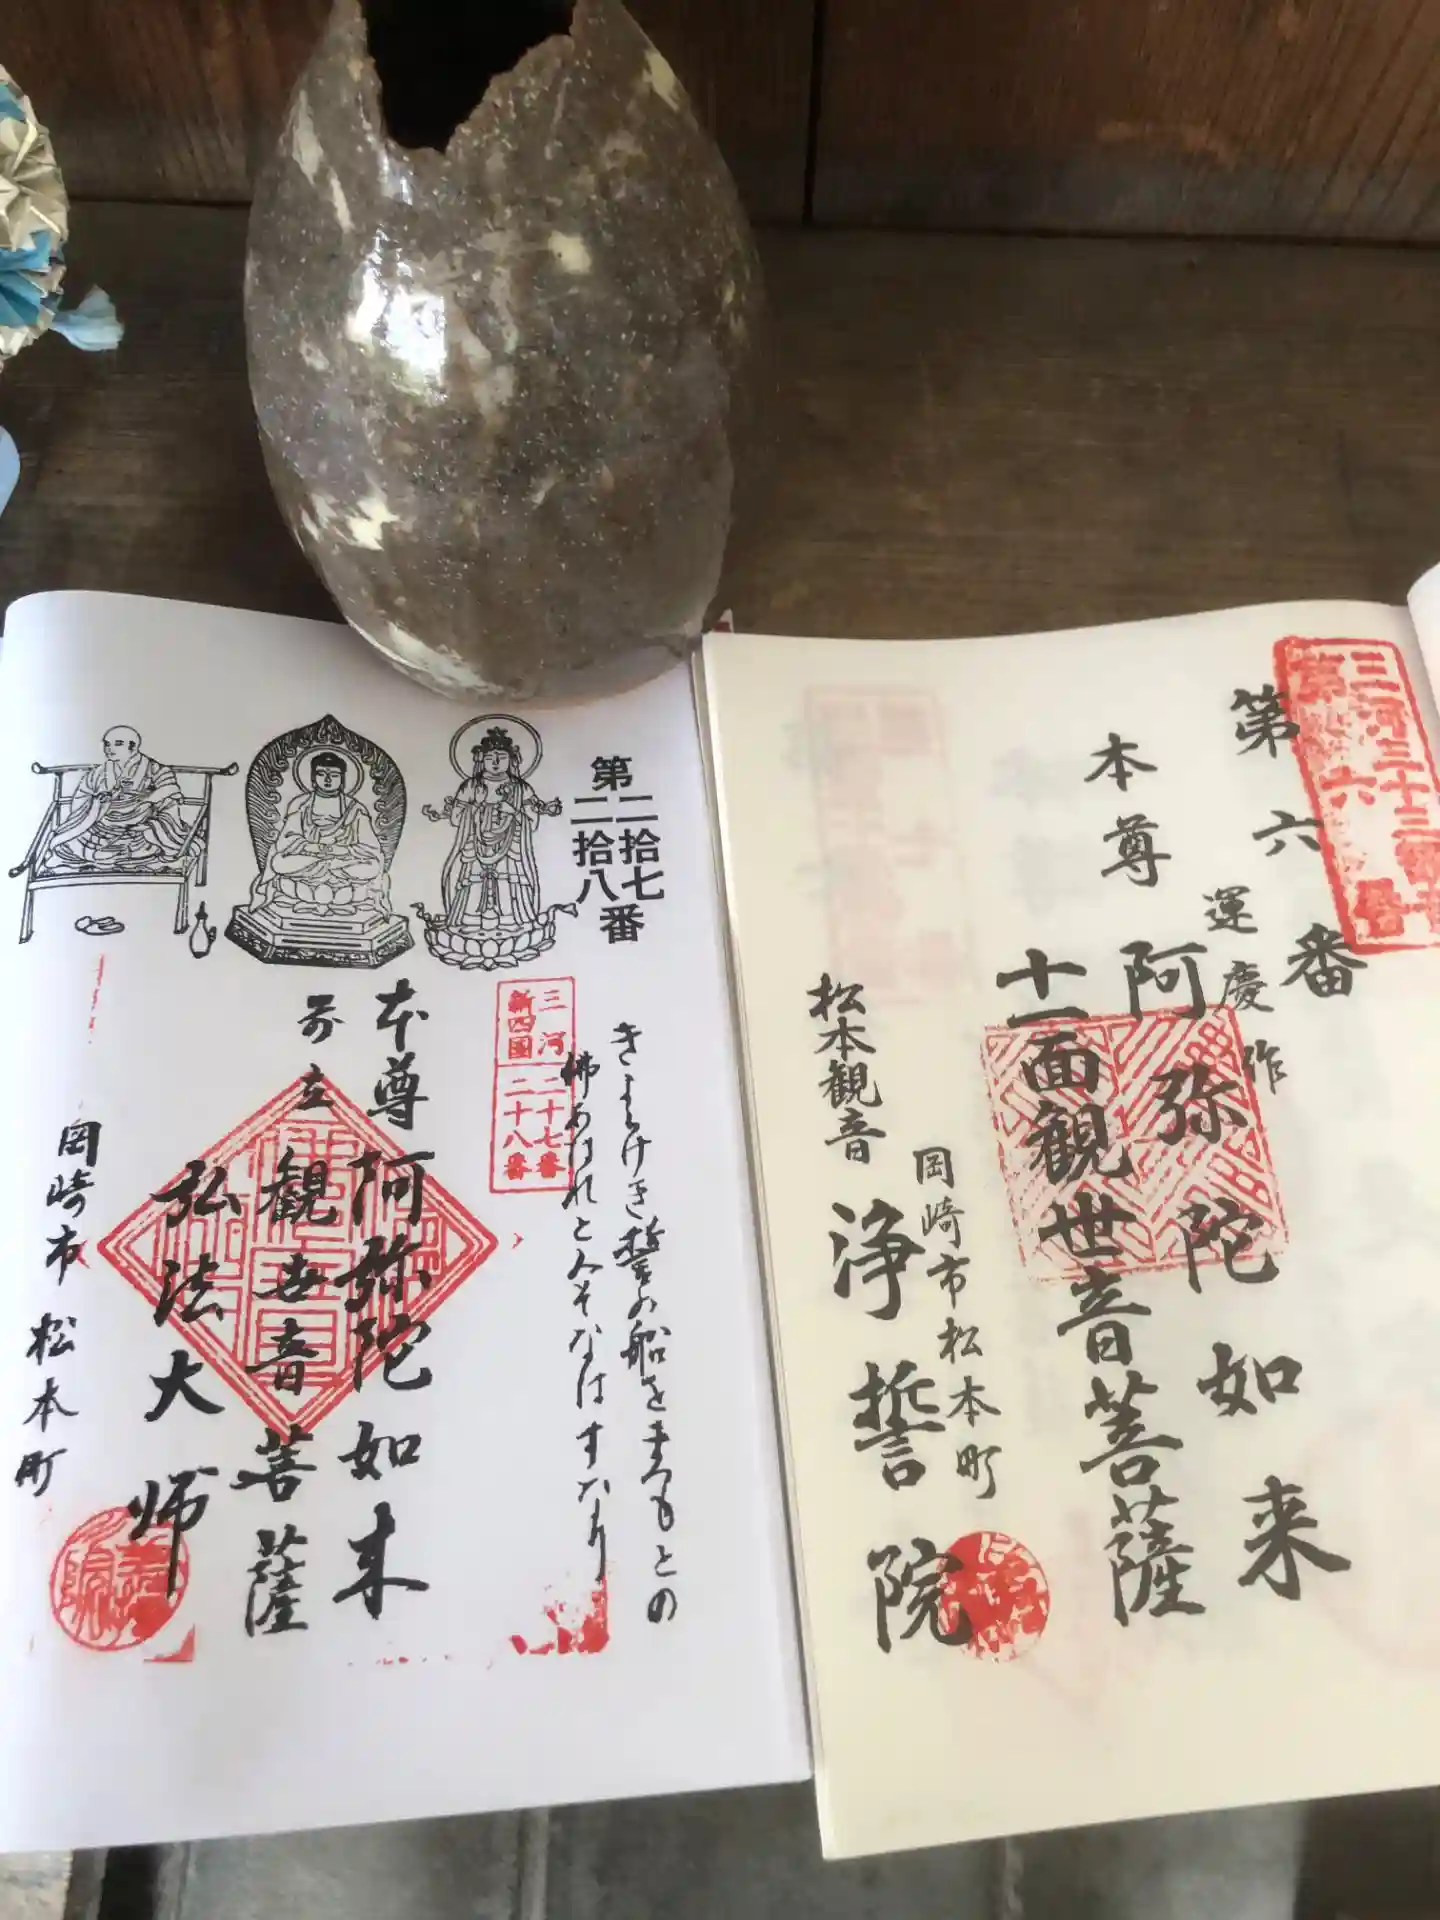 第二拾七
二拾八番
三河
新四国
二十七番
二十八番
きよらけき誓の船をまつもとの
佛あはれとみそなはすなり
本尊 阿弥陀如来
前立 観世音菩薩
弘法大師
岡崎市松本町
三河三十三観音
第六番
第六番
運慶作
本尊 阿弥陀如来
十一面観世音菩薩
岡崎市松本町
松本観音 浄誓院